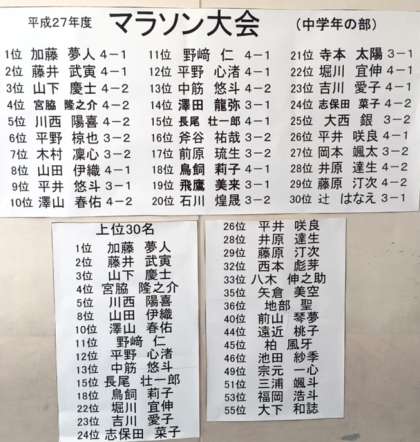 平成27年度 マラソン大会 (中学年の部)
1位 加藤 夢人 4-1
2位 藤井 武寅 4-1
3位 山下 慶士 4-2
4位 宮脇 隆之介 4-2
5位 川西 陽喜 4-2
6位 平野 椋也 3-2
7位 木村 凜心 3-2
8位 山田 伊織 4-1
9位 平井 悠斗 3-1
10位 澤山 春佑 4-2
11位 野﨑 仁 4-1
12位 平野 心渚 4-1
13位 中筋 悠斗 4-2
14位 澤田 龍弥 3-1
15位 長尾 壮一郎 4-1
16位 斧谷 祐哉 3-2
17位 前原 琉生 3-2
18位 鳥飼 莉子 4-1
19位 飛鷹 美来 3-1
20位 石川 煌晟 3-2
21位 寺本 太陽 3-1
22位 堀川 宜伸 4-1
23位 吉川 愛子 4-1
24位 志保田 菜子 4-2
25位 大西 銀 3-2
26位 平井 咲良 4-1
27位 岡本 颯太 3-2
28位 井原 達生 4-2
29位 藤原 汀次 4-2
30位 辻 はなえ 3-1
上位30名
1位 加藤 夢人
2位 藤井 武寅
3位 山下 慶士
4位 宮脇 隆之介
5位 川西 陽喜
8位 山田 伊織
10位 澤山 春佑
11位 野﨑 仁
12位 平野 心渚
13位 中筋 悠斗
15位 長尾 壮一郎
18位 鳥飼 莉子
22位 堀川 宜伸
23位 吉川 愛子
24位 志保田 菜子
26位 平井 咲良
28位 井原 達生
29位 藤原 汀次
32位 西本 彪芽
33位 八木 伸之助
35位 矢倉 美空
36位 地部 聖
40位 前山 琴夢
44位 遠近 桃子
45位 柏 風牙
46位 池田 紗季
49位 宗元 一心
51位 三浦 颯斗
53位 福岡 浩斗
55位 大下 和誌